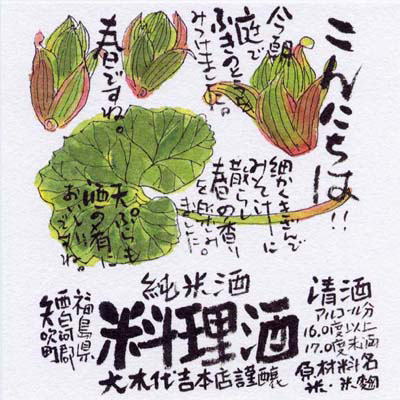 こんにちは!!
今朝
庭で
ふきのとうを
みつけました。
春ですね。
細かくきざんで
みそ汁に
散らし
春の香り
を楽しみ
ました。
天ぷらも
酒の肴に
おいしい
ですね。
純米酒
料理酒
大木代吉本店謹醸
清酒
アルコール分
16.0度以上
17.0度未満
原材料名
米・米麹
福島県
西白河郡
矢吹町